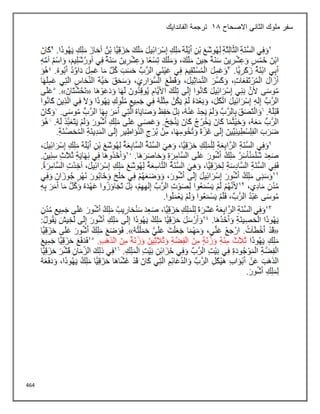 سفر ملوك الثاني الاصحاح ١٨ ترجمة الفاندايك
١وَفِي السَّنَةِ الثَّالِثَةِ لِهُوشَعَ بْنِ أَيْلَةَ مَلِكِ إِسْرَائِيلَ مَلَكَ حَزَقِيَّا بْنُ آحَازَ مَلِكِ يَهُوذَا. ٢كَانَ
ابْنَ خَمْسٍ وَعِشْرِينَ سَنَةً حِينَ مَلَكَ، وَمَلَكَ تِسْعًا وَعِشْرِينَ سَنَةً فِي أُورُشَلِيمَ، وَاسْمُ أُمِّهِ
أَبِي ابْنَةُ زَكَرِيَّا. ٣وَعَمِلَ الْمُسْتَقِيمَ فِي عَيْنَيِ الرَّبِّ حَسَبَ كُلِّ مَا عَمِلَ دَاوُدُ أَبُوهُ. ٤هُوَ
أَزَالَ الْمُرْتَفَعَاتِ، وَكَسَّرَ التَّمَاثِيلَ، وَقَطَّعَ السَّوَارِيَ، وَسَحَقَ حَيَّةَ النُّحَاسِ الَّتِي عَمِلَهَا
مُوسَى لأَنَّ بَنِي إِسْرَائِيلَ كَانُوا إِلَى تِلْكَ الأَيَّامِ يُوقِدُونَ لَهَا وَدَعَوْهَا «نَحُشْتَانَ». ٥عَلَى
الرَّبِّ إِلهِ إِسْرَائِيلَ اتَّكَلَ، وَبَعْدَهُ لَمْ يَكُنْ مِثْلُهُ فِي جَمِيعِ مُلُوكِ يَهُوذَا وَلاَ فِي الَّذِينَ كَانُوا
قَبْلَهُ. ٦وَالْتَصَقَ بِالرَّبِّ وَلَمْ يَحِدْ عَنْهُ، بَلْ حَفِظَ وَصَايَاهُ الَّتِي أَمَرَ بِهَا الرَّبُّ مُوسَى. ٧وَكَانَ
الرَّبُّ مَعَهُ، وَحَيْثُمَا كَانَ يَخْرُجُ كَانَ يَنْجَحُ. وَعَصَى عَلَى مَلِكِ أَشُّورَ وَلَمْ يَتَعَبَّدْ لَهُ. ٨هُوَ
ضَرَبَ الْفِلِسْطِينِيِّينَ إِلَى غَزَّةَ وَتُخُومِهَا، مِنْ بُرْجِ النَّوَاطِيرِ إِلَى الْمَدِينَةِ الْمُحَصَّنَةِ.
٩وَفِي السَّنَةِ الرَّابِعَةِ لِلْمَلِكِ حَزَقِيَّا، وَهِيَ السَّنَةُ السَّابِعَةُ لِهُوشَعَ بْنِ أَيْلَةَ مَلِكِ إِسْرَائِيلَ،
صَعِدَ شَلْمَنْأَسَرُ مَلِكُ أَشُّورَ عَلَى السَّامِرَةِ وَحَاصَرَهَا. ١٠وَأَخَذُوهَا فِي نِهَايَةِ ثَلاَثِ سِنِينَ.
فَفِي السَّنَةِ السَّادِسَةِ لِحَزَقِيَّا، وَهِيَ السَّنَةُ التَّاسِعَةُ لِهُوشَعَ مَلِكِ إِسْرَائِيلَ، أُخِذَتِ السَّامِرَةُ.
١١وَسَبَى مَلِكُ أَشُّورَ إِسْرَائِيلَ إِلَى أَشُّورَ، وَوَضَعَهُمْ فِي حَلَحَ وَخَابُورَ نَهْرِ جُوزَانَ وَفِي
مُدُنِ مَادِي، ١٢لأَنَّهُمْ لَمْ يَسْمَعُوا لِصَوْتِ الرَّبِّ إِلهِهِمْ، بَلْ تَجَاوَزُوا عَهْدَهُ وَكُلَّ مَا أَمَرَ بِهِ
مُوسَى عَبْدُ الرَّبِّ، فَلَمْ يَسْمَعُوا وَلَمْ يَعْمَلُوا.
١٣وَفِي السَّنَةِ الرَّابِعَةَ عَشَرَةَ لِلْمَلِكِ حَزَقِيَّا، صَعِدَ سَنْحَارِيبُ مَلِكُ أَشُّورَ عَلَى جَمِيعِ مُدُنِ
يَهُوذَا الْحَصِينَةِ وَأَخَذَهَا. ١٤وَأَرْسَلَ حَزَقِيَّا مَلِكُ يَهُوذَا إِلَى مَلِكِ أَشُّورَ إِلَى لَخِيشَ يَقُولُ:
«قَدْ أَخْطَأْتُ. ارْجِعْ عَنِّي، وَمَهْمَا جَعَلْتَ عَلَيَّ حَمَلْتُهُ». فَوَضَعَ مَلِكُ أَشُّورَ عَلَى حَزَقِيَّا
مَلِكِ يَهُوذَا ثَلاَثَ مِئَةِ وَزْنَةٍ مِنَ الْفِضَّةِ وَثَلاَثِينَ وَزْنَةً مِنَ الذَّهَبِ. ١٥فَدَفَعَ حَزَقِيَّا جَمِيعَ
الْفِضَّةِ الْمَوْجُودَةِ فِي بَيْتِ الرَّبِّ وَفِي خَزَائِنِ بَيْتِ الْمَلِكِ. ١٦فِي ذلِكَ الزَّمَانِ قَشَّرَ حَزَقِيَّا
الذَّهَبَ عَنْ أَبْوَابِ هَيْكَلِ الرَّبِّ وَالدَّعَائِمِ الَّتِي كَانَ قَدْ غَشَّاهَا حَزَقِيَّا مَلِكُ يَهُوذَا، وَدَفَعَهُ
لِمَلِكِ أَشُّورَ.
464